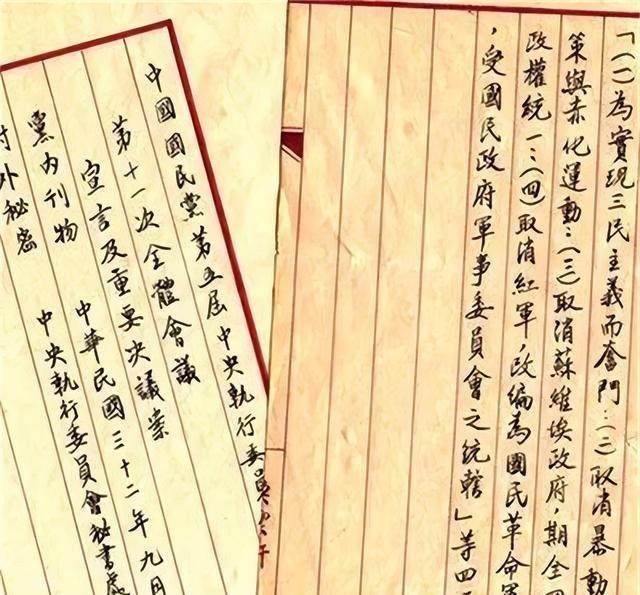 「(一)為實現三民主義而奮鬥:(二)取消暴動
策與赤化運動:(三)取消蘇維埃政府,期全國
政權統一:(四)取消紅軍,改編為國民革命軍
,受國民政府軍事委員會之統轄」等四
中國國民黨第五屆中央執行委員
第十一次全體會議
宣言及重要決議案
中華民國三十二年九月
黨內刊物 中央執行委員會秘書處
對外秘密